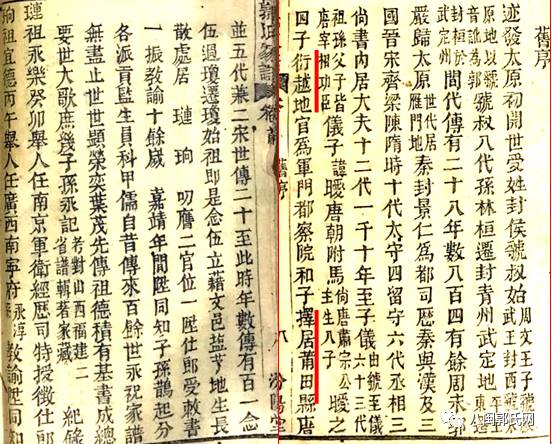 舊序
迹發太原初開世愛姓封侯虢叔始 周文王子 武王封西虢
原地以虢 音訛為郭 虢叔八代孫林桓遷封青州武定地
封桓於 武定州 間代傳有二十八年數八百四有餘周末
嚴歸太原 世代居 雁門地 秦封景仁為都司歷秦與漢及三
國晉宋齊梁陳隋時十代太守四留守六代丞相三
尚書內居大夫十二代一千十年至子儀 由虢至儀 六十三代
祖孫父子皆 唐宰相功臣 儀子 諱曖 唐朝附馬 尚唐肅宗公 主生八子 曖之
四子衍越地官為軍門都察院和子擇居莆田縣唐
舊序 八 汾陽堂
郭氏家譜 卷前
並五代兼二宋世傳二十至此時年數傳有百一念
伍遇瓊遷瓊始祖即是念伍立藉文邑益地生長
散處居 璉 珦 叨膺二官位一陞仕郎受敕書
一振教諭十餘歲 嘉靖年間陞同知子孫鵲起分
各派貢監生員科甲儒自昔傳來百餘世永祝家譜
無盡止世世顯榮奕葉茂先傳祖德積有基書成總
要世大歌庶幾子孫永記 考對山西福建二 省譜輯著家藏 紀錄
璉祖永樂癸卯舉人任南京軍衛經歷司特授徵仕郎
珦祖宣德丙午舉人任廣西南寧府 永淳 教諭陞同知
八閩郭氏网